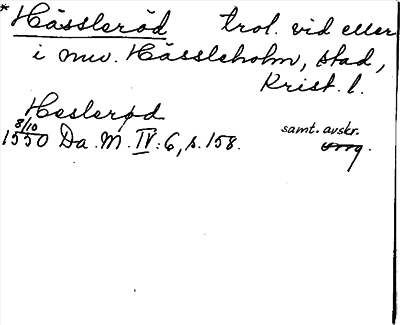 * Hässleröd trol. vid eller
i nuv. Hässleholm, stad,
Krist. l.
Heslerød
8/10 samt. avskr.
1550 Da. M. IV: 6, s. 158.